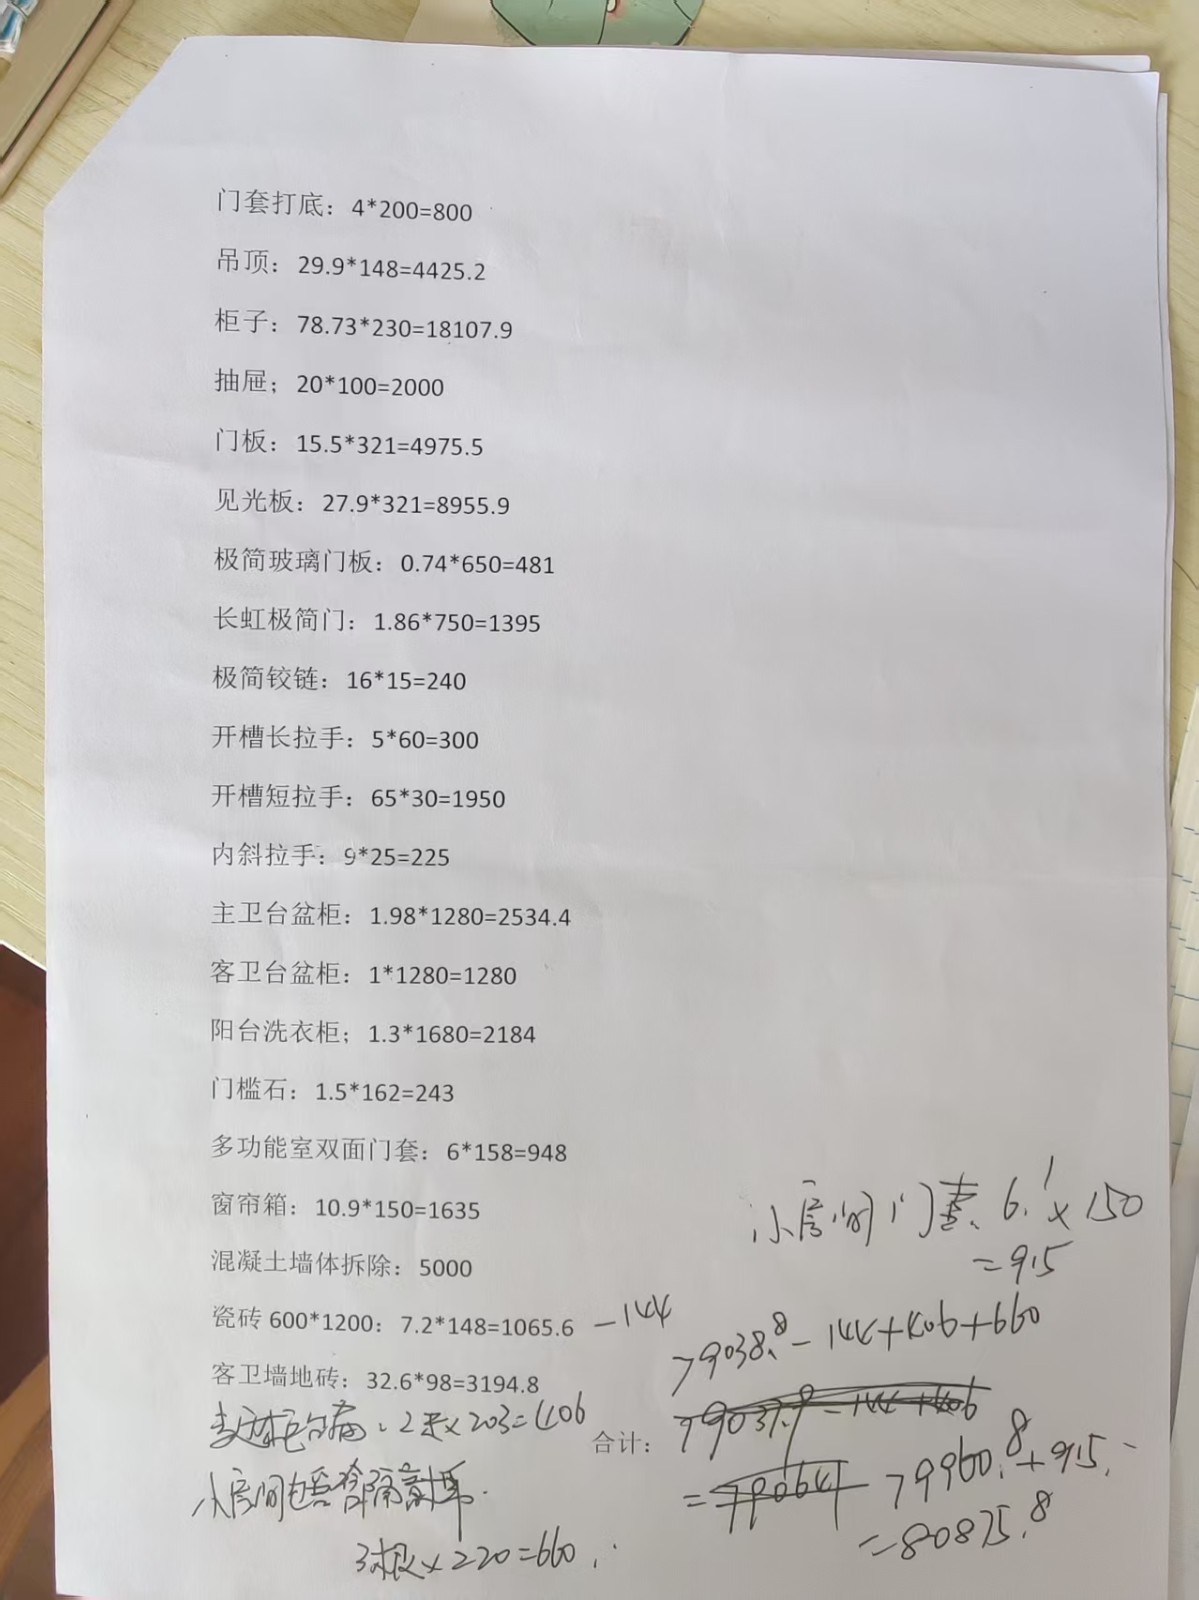 门套打底：4*200=800
吊顶：29.9*148=4425.2
柜子：78.73*230=18107.9
抽屉；20*100=2000
门板：15.5*321=4975.5
见光板：27.9*321=8955.9
极简玻璃门板：0.74*650=481
长虹极简门：1.86*750=1395
极简铰链：16*15=240
开槽长拉手：5*60=300
开槽短拉手：65*30=1950
内斜拉手：9*25=225
主卫台盆柜：1.98*1280=2534.4
客卫台盆柜：1*1280=1280
阳台洗衣柜；1.3*1680=2184
门槛石：1.5*162=243
多功能室双面门套：6*158=948
窗帘箱：10.9*150=1635
小房间门套 6.1×150
=915
混凝土墙体拆除：5000
瓷砖 600*1200：7.2*148=1065.6 -144
79038.8-144+406+660
客卫墙地砖：32.6*98=3194.8
2米×203=406
合计：79037.9-144+406
小房间 包管隔音
=79064 79960.8+915
3根×220=660
=80875.8